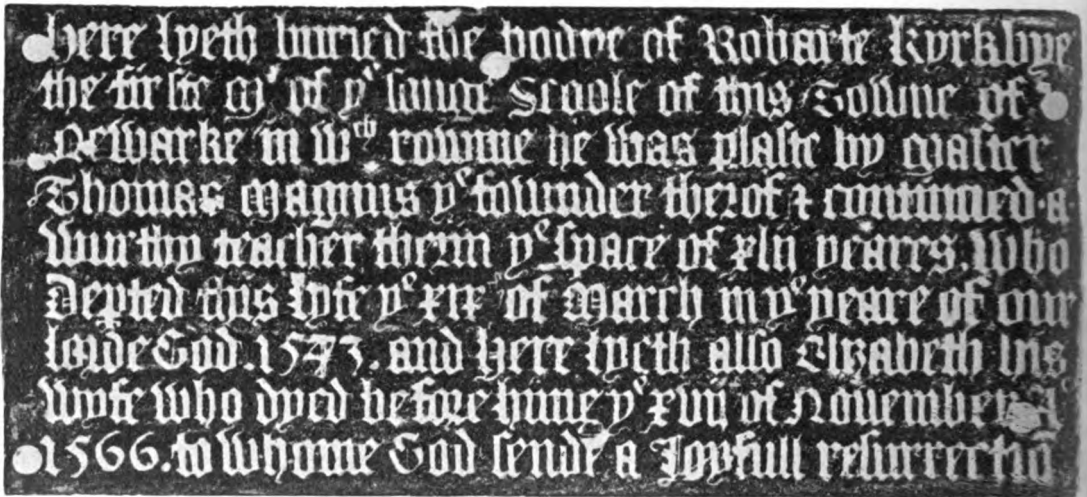 Here lyeth buried the bodye of Robarte Kyrkbye
the firste mʳ of yᵉ songe Scoole of this Towne of
Newarke in wᶜʰ rowme he was plaste by master
Thomas Magnus yᵉ fownder therof & contınued a
wurthy teacher therin yᵉ space of xlij yeares. Who
Dep̱ted this lyfe yᵉ xix of March in yᵉ yeare of our
lorde God. 1573. and Here lyeth also Elizabeth his
wyfe who dyed before hime yᵉ xviij of November
1566. to whome God sende a Joyfull resurrectiō